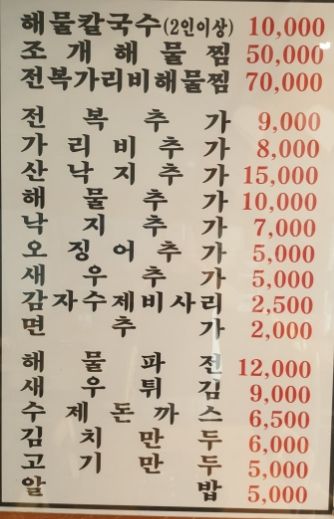 해물칼국수(2인이상) 10,000
조개해물찜 50,000
전복가리비해물찜 70,000
전복추가 9,000
가리비추가 8,000
산낙지추가 15,000
해물추가 10,000
낙지추가 7,000
오징어추가 5,000
새우추가 5,000
감자수제비사리 2,500
면추가 2,000
해물파전 12,000
새우튀김 9,000
수제돈까스 6,500
김치만두 6,000
고기만두 5,000
알밥 5,000